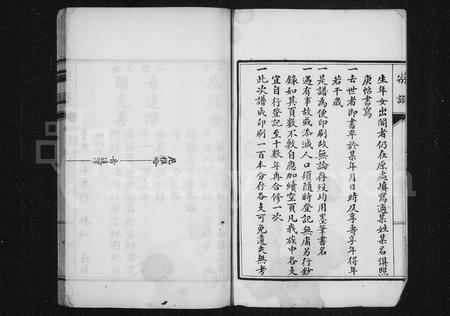 生年女出閣者仍在原處填寫適某姓某名俱照
庚帖書寫
一去世者即書卒於某年月日時及享壽享年得年
若干歲
一是譜為便印刷故無論存歿均用墨筆書名
一遇有事故或添減人口須隨時登記無庸另行鈔
錄如其頁數不敷自應加續空頁凡我族中各支
宜自行登記至十數年再合修一次
一此次譜成印刷一百本分存各支可免遺失無考